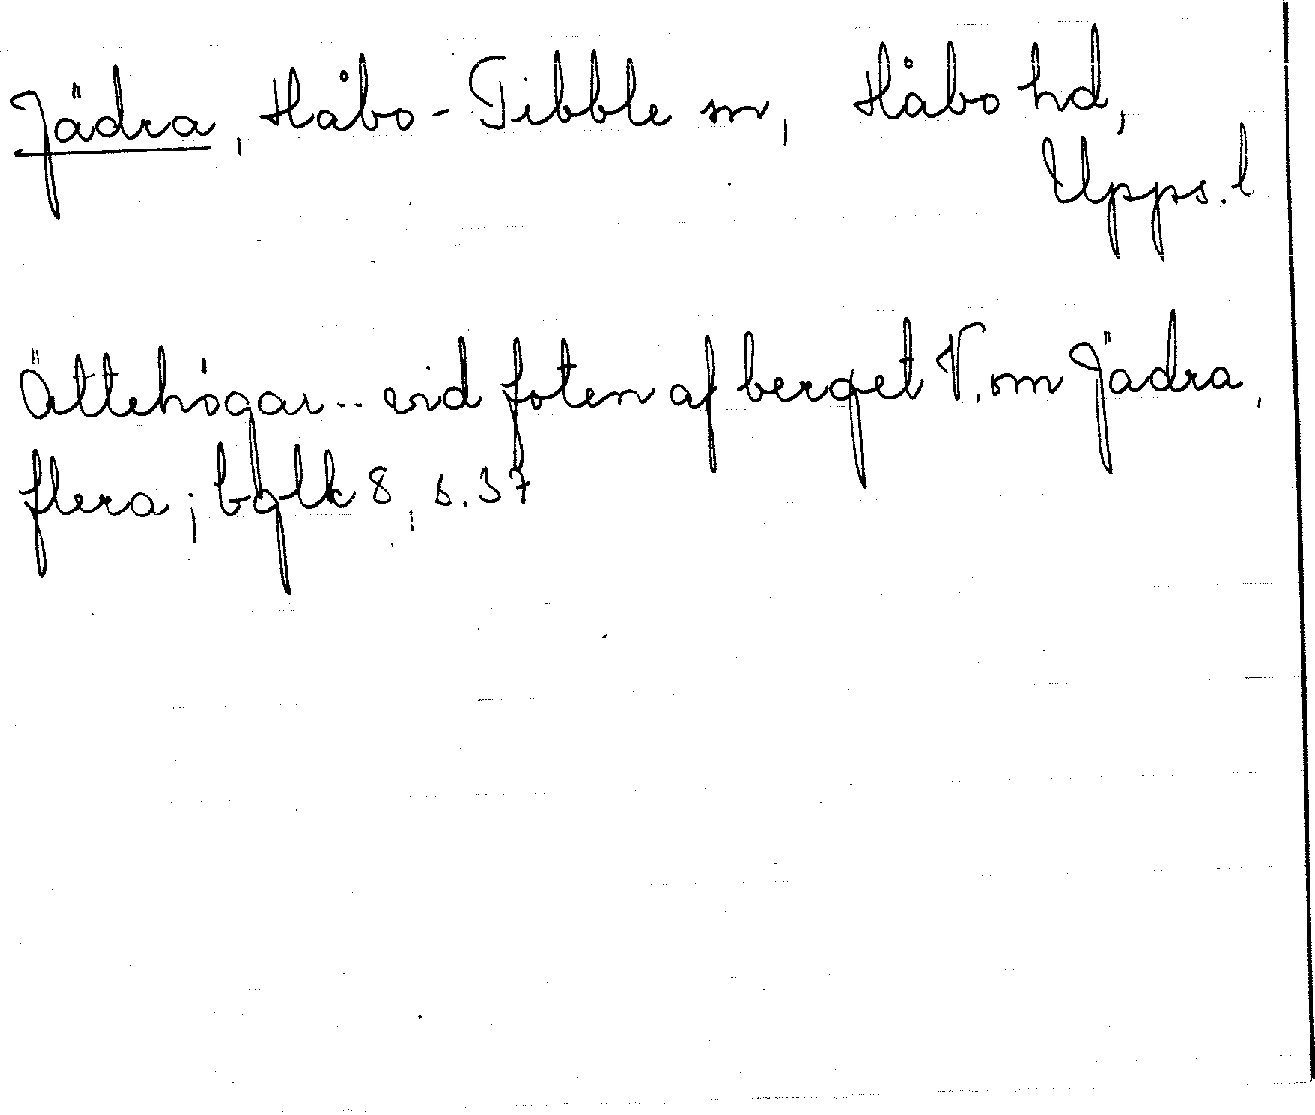 Jädra, Håbo-Tibble sn, Håbo hd,
Upps. l
Ättehögar .. vid foten af berget V. om Jädra,
flera; bqlk 8, s. 37